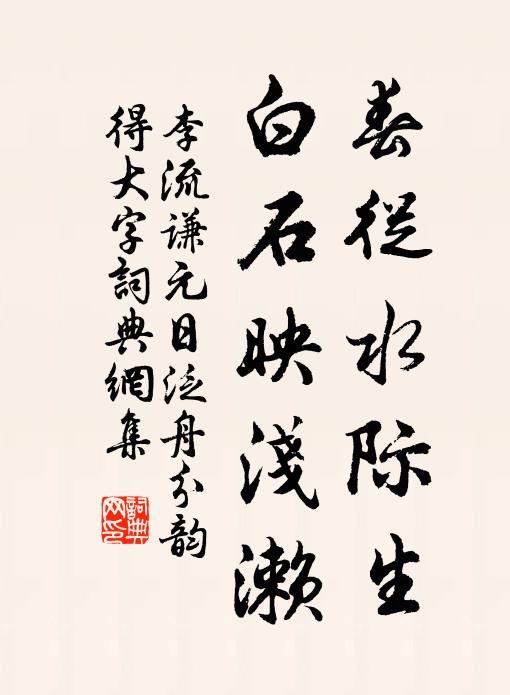 春從水际生
白石映淺瀨
李流谦元日泛舟分韵
得大字詞典網集
詞典
网印